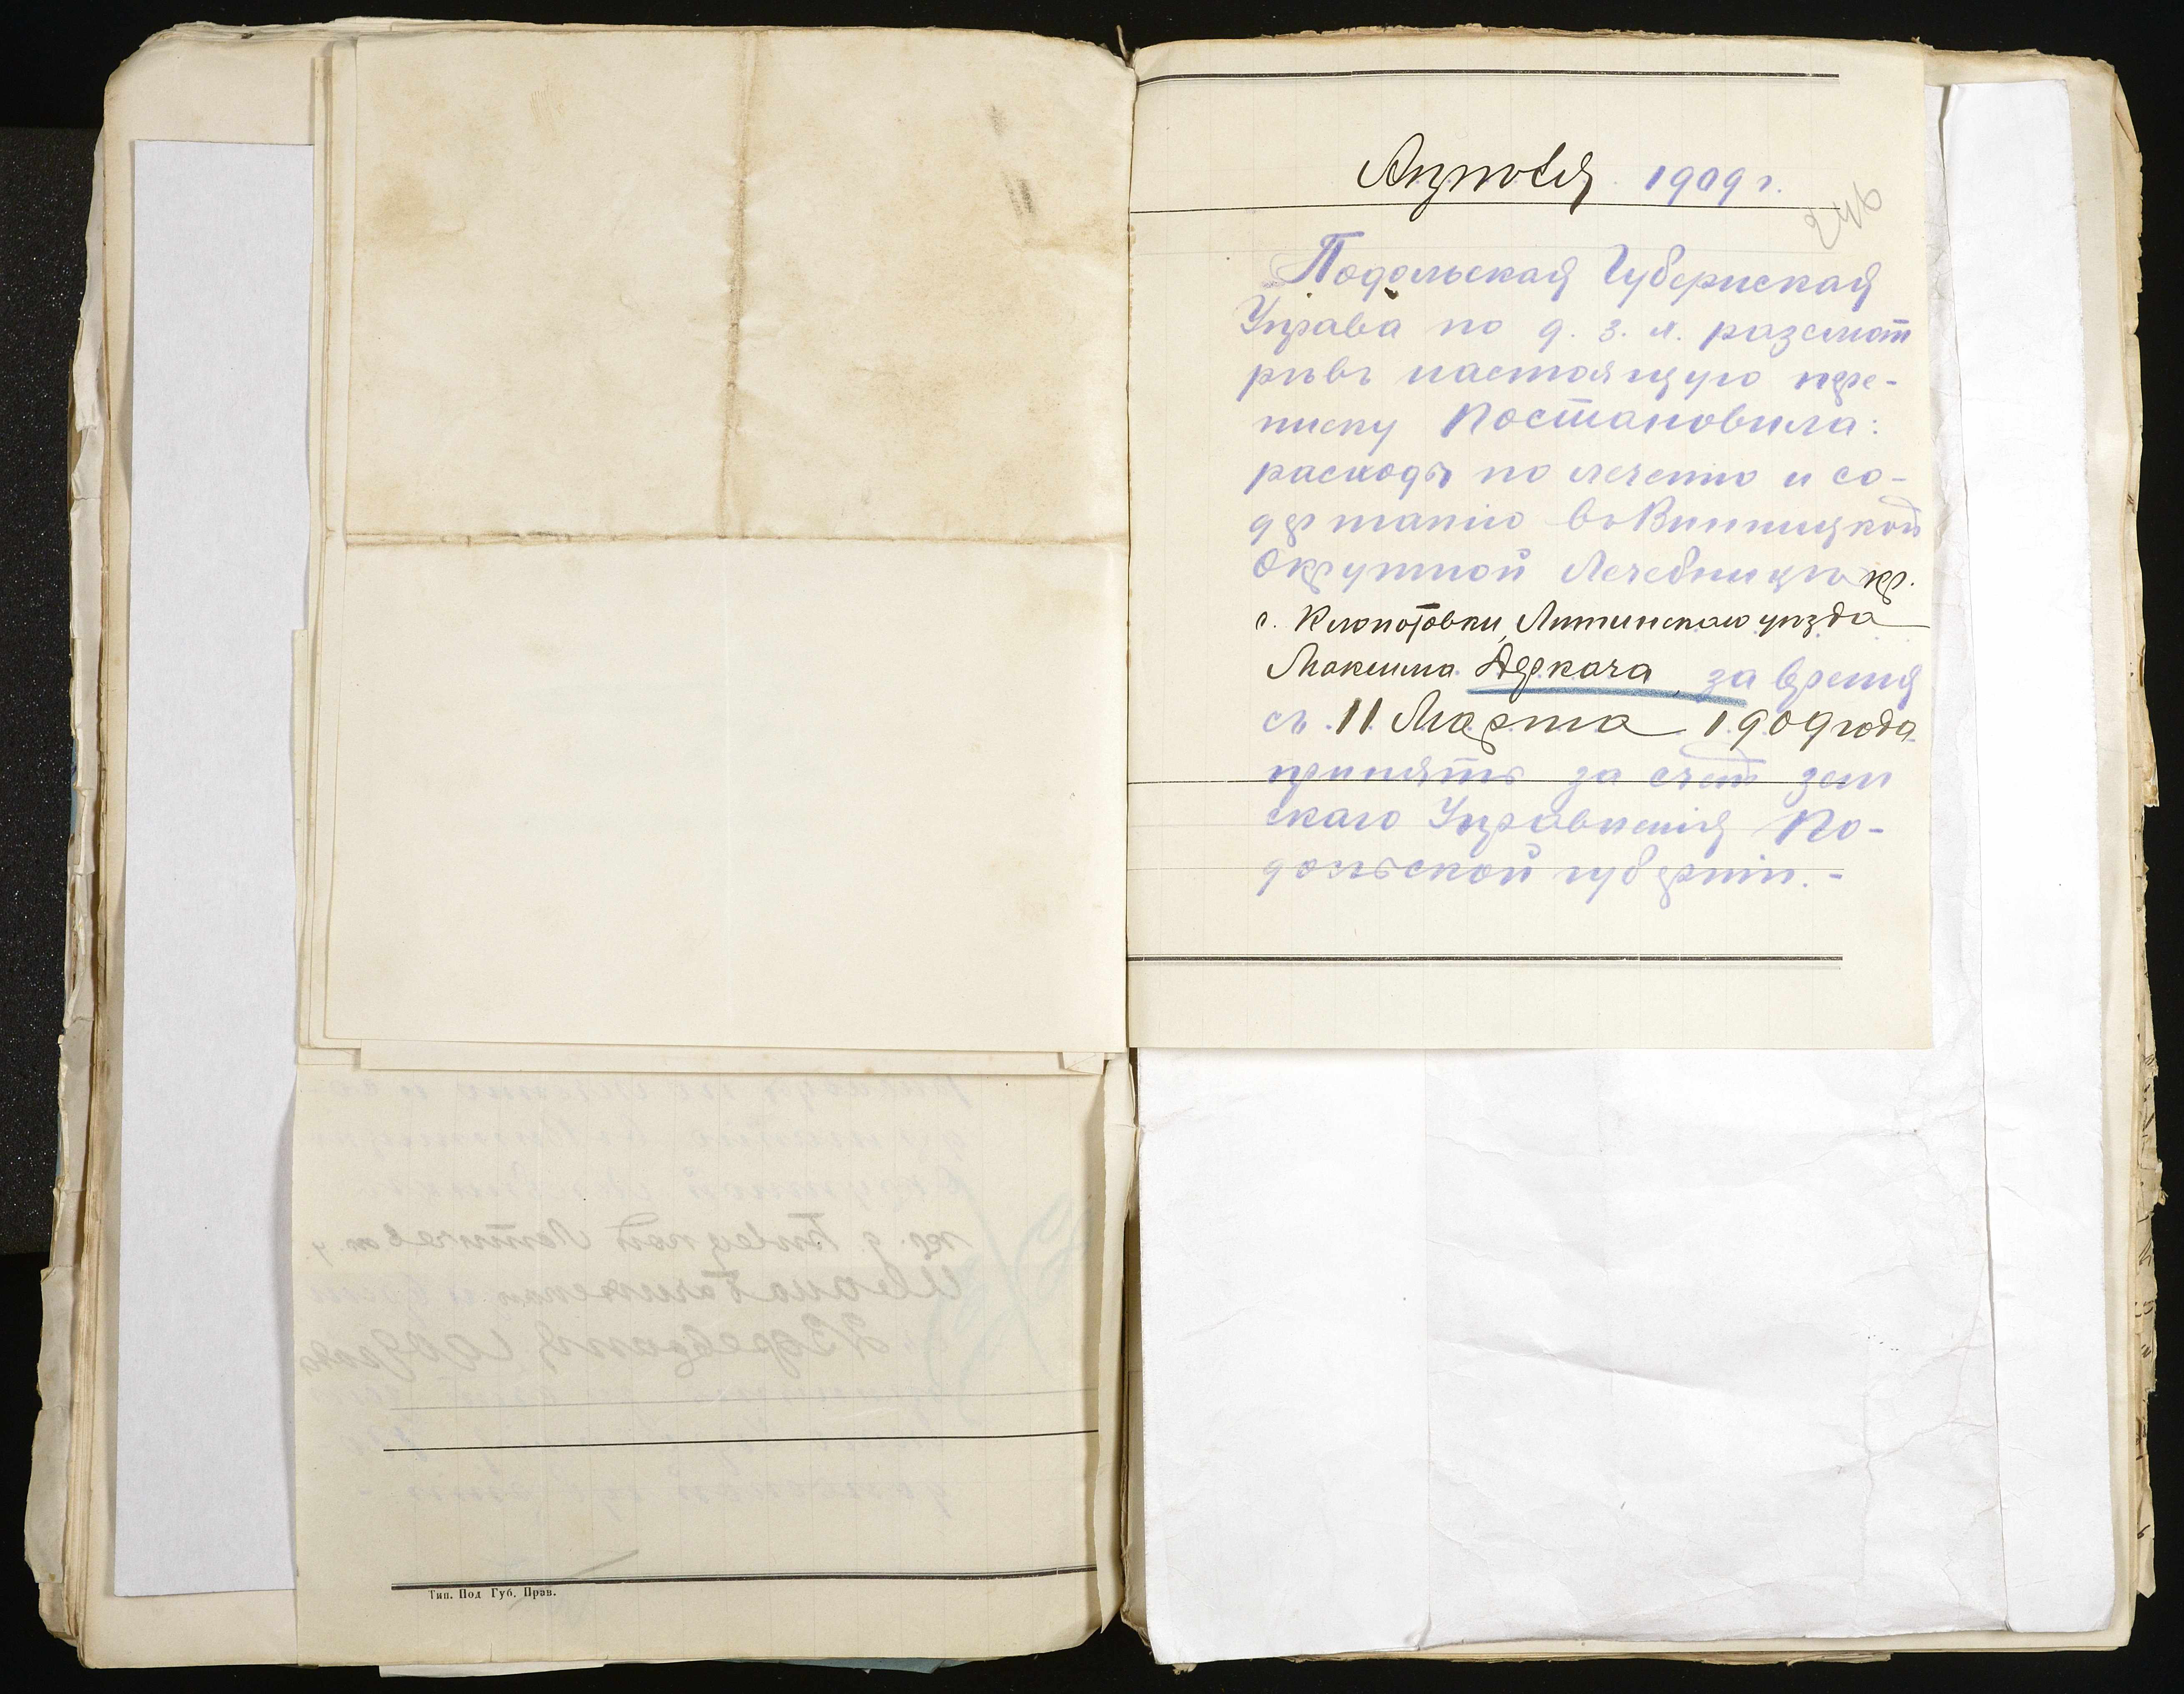 Апреля 1909 г.
246
Подольская Губернская
Управа по д. з. х. разсмот
рѣвъ настоящую пере-
писку Постановила:
расходъ по леченію и со-
держанію въ Винницкой
Окружной Лечебницѣ кр.
с. Клопотовки, Литинскаго уѣзда
Максима Деркача, за время
съ 11 Марта 1909 года
принять за счет зем
скаго Управленія По-
дольской губерніи. -
Тип. Под Губ. Прав.